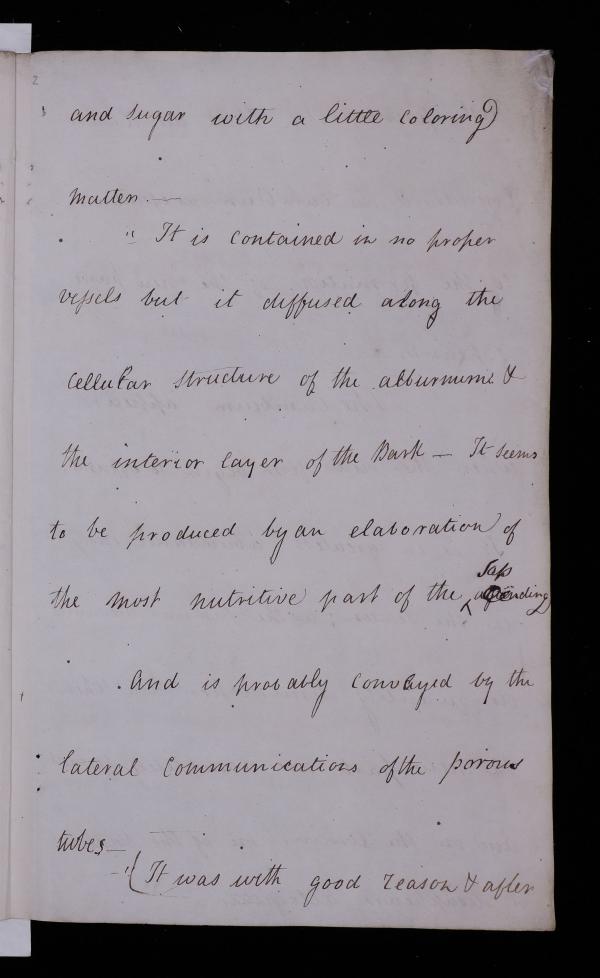 2
and sugar with a little coloring
matter. —
" It is contained in no proper
vessels but it diffused along the
cellular structure of the alburnum &
the interior layer of the Bark — It seems
to be produced by an elaboration of
Sap
the most nutritive part of the ^ ascending
. And is probably conveyed by the
lateral communications of the porous
tubes —
"( It was with good reason & after